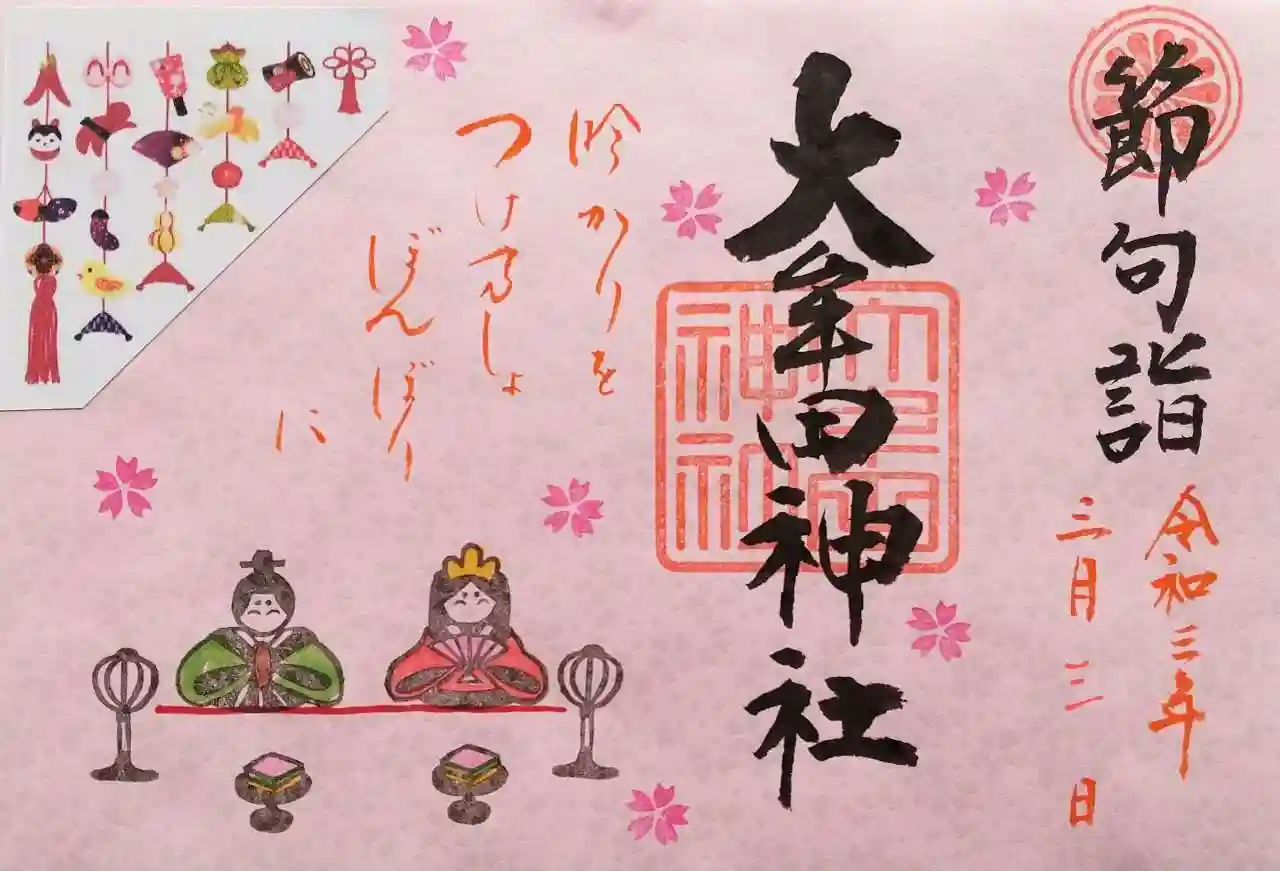 節句詣
令和三年
三月三日
大牟田神社
明かりを
つけましょ
ぼんぼり
に